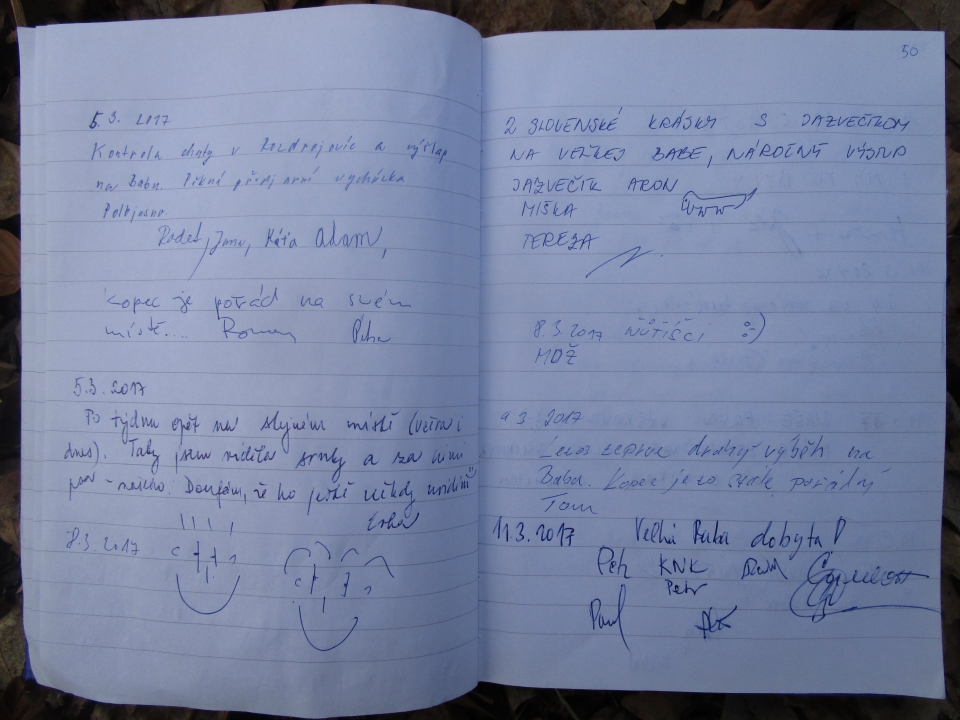 5.3. 2017
Kontrola chaty v Rozdrojovic a výšlap
na Babu. Pěkná předjarní vycházka
Polojasno.
Radek, Jana, Káťa Adam,
Kopec je pořád na svém
místě.... Roman Petra
5.3. 2017
Po týdnu opět na stejném místě (včera i
dnes). Taky jsem viděla srnky a za nimi
psa Doufám, že ho ještě někdy uvidím
8.3.2017
50
2 SLOVENSKÉ KRÁSKY S JAZVEČÍKOM
NA VEĽKEJ BABE, NÁROČNÝ VÝSTUP
JAZVEČÍK ARON
MIŠKA
TEREZA
8.3.2017 :-)
MDŽ
9.3. 2017
Letos teprve druhý výběh na
Babu. Kopec je to stále pořádný
Tom
11.3.2017 Velká Baba dobyta
Petr KNK
Petr
Pavel